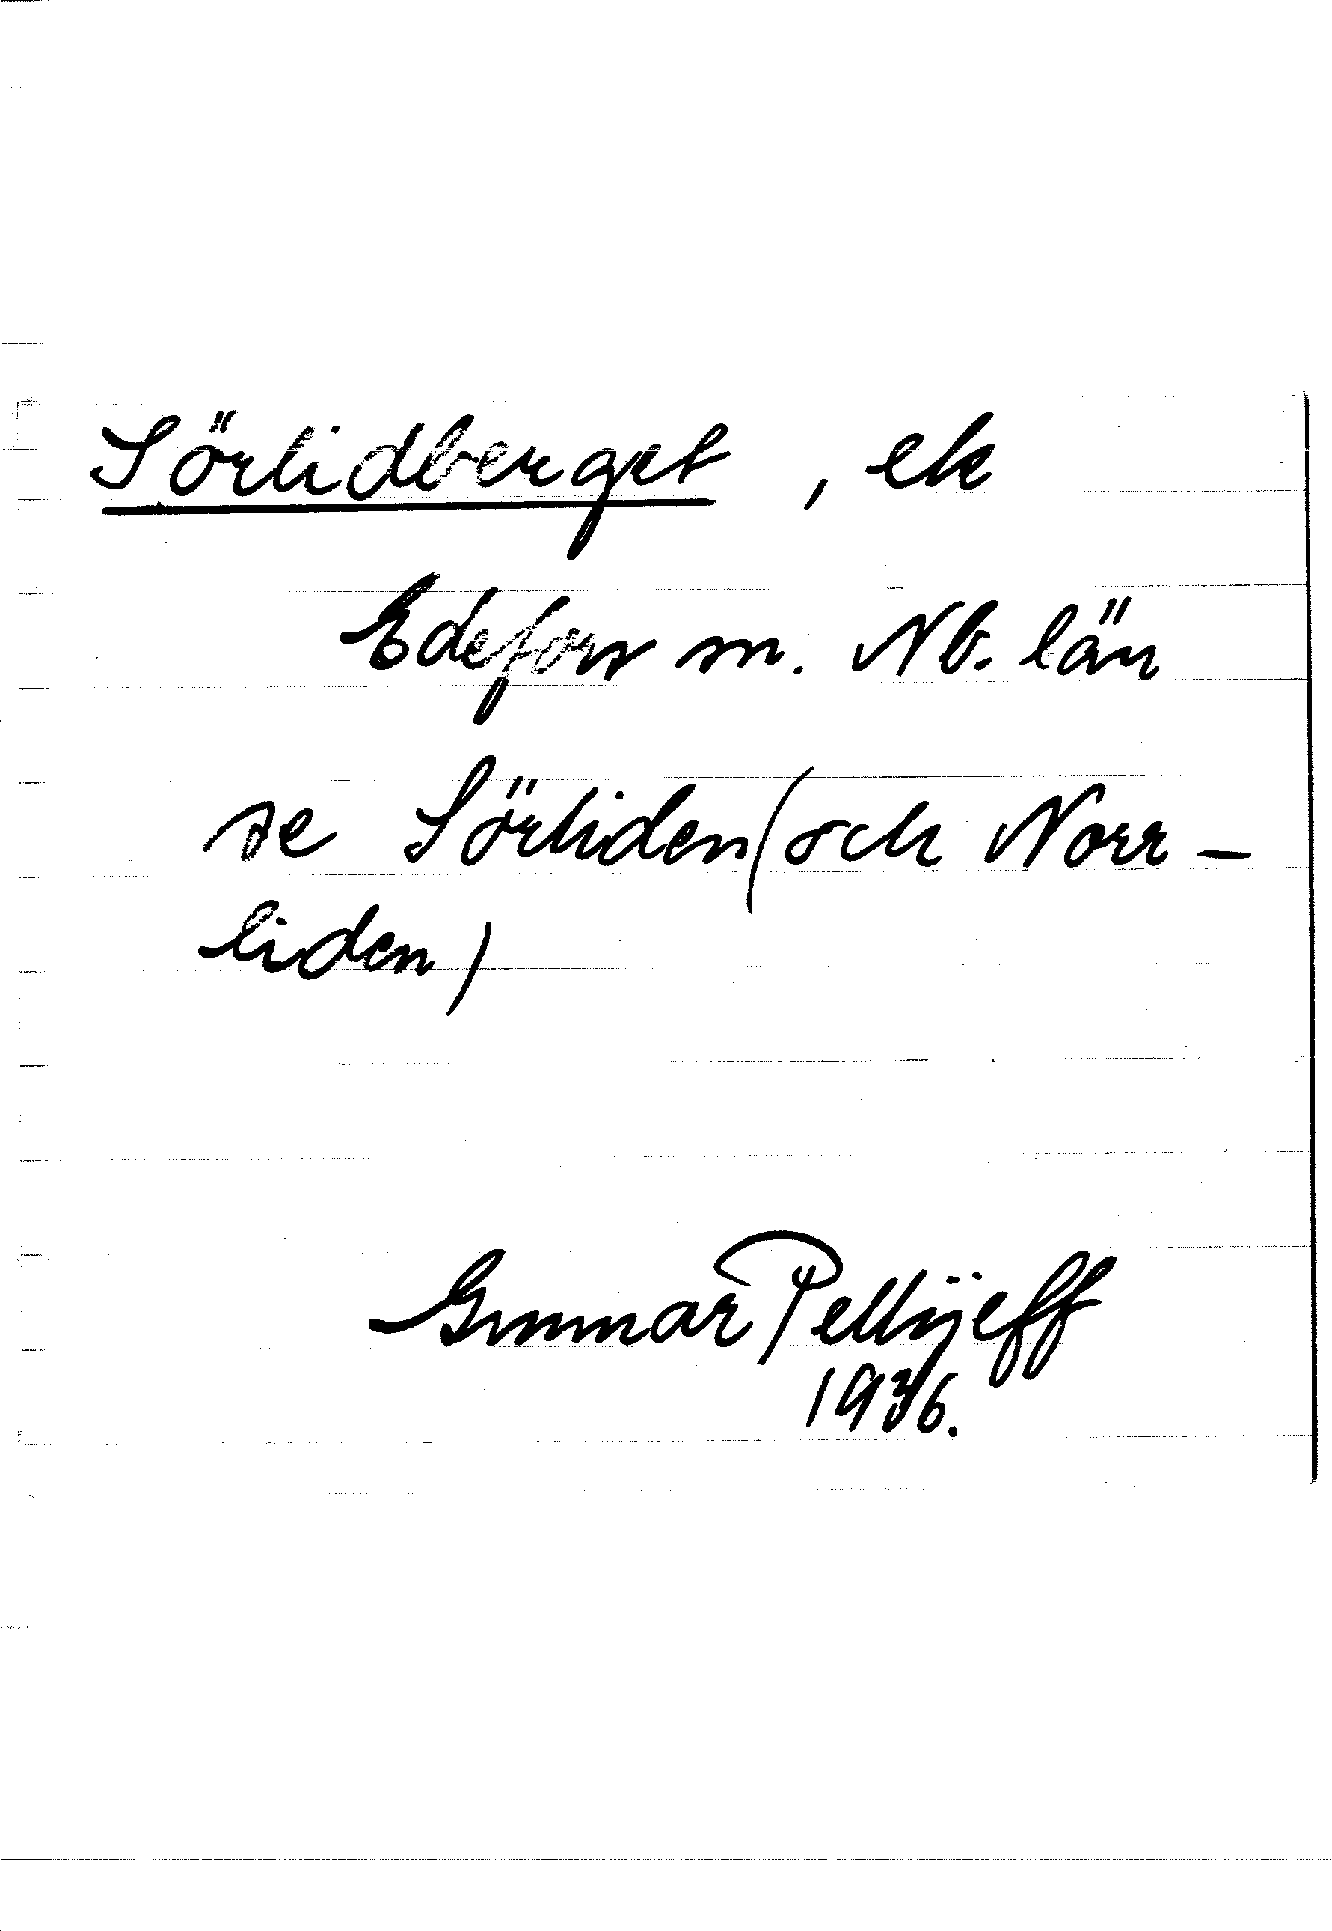 Sörlidberget, ek
Edefors sn. Nb. län
se Sörliden (och Norr-
liden)
Gunnar Pellijeff
1936.